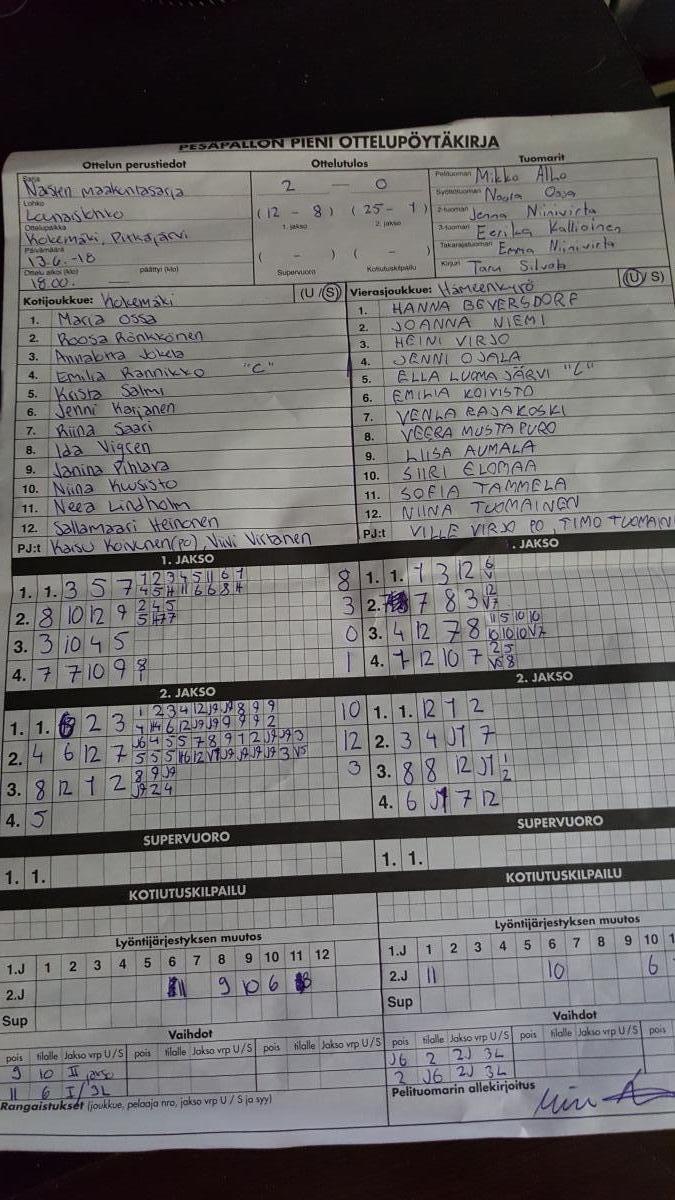 PESÄPALLON PIENI OTTELUPÖYTÄKIRJA
Ottelun perustiedot
Ottelutulos
Tuomarit
Sarja
Naisten maakuntasarja
Lohko
Lounaislohko
Ottelupaikka
Kokemäki, Pitkäjärvi
Päivämäärä
13.6.-18
Ottelu alkoi (klo) päättyi (klo)
18.00
2 — 0
(12 - 8) (25 - 1)
1. jakso 2. jakso
( - ) ( - )
Supervuoro Kotiutuskilpailu
Pelituomari Mikko Alho
Syöttötuomari Noora Ossa
2-tuomari Jenna Niinivirta
3-tuomari Eerika Kallioinen
Takarajatuomari Emma Niinivirta
Kirjuri Taru Silvola
Kotijoukkue: Kokemäki (U / S)
1. Maria Ossa
2. Roosa Rönkkönen
3. Annabita Jokela
4. Emilia Rannikko "C"
5. Krista Salmi
6. Jenni Karjanen
7. Riina Saari
8. Ida Vigren
9. Janina Pihlava
10. Niina Kuusisto
11. Neea Lindholm
12. Sallamaari Heinonen
PJ:t Kaisu Koivunen(PO), Viivi Virtanen
Vierasjoukkue: Hämeenkyrö (U / S)
1. HANNA BEVERSDORF
2. JOANNA NIEMI
3. HEINI VIRJO
4. JENNI OJALA
5. ELLA LUOMAJÄRVI "C"
6. EMILIA KOIVISTO
7. VENLA RAJAKOSKI
8. VEERA MUSTAPURO
9. LIISA AUMALA
10. SIIRI ELOMAA
11. SOFIA TAMMELA
12. NIINA TUOMAINEN
PJ:t VILLE VIRJO PO, TIMO TUOMAIN
1. JAKSO
1. 1. 3 5 7 8
2. 8 10 12 9 3
3. 3 10 4 5 0
4. 7 7 10 9 8 1
. JAKSO
1. 1. 1 3 12
2. 7 8 3
3. 4 12 7 8
4. 1 12 10 7
2. JAKSO
1. 1. 2 3 10
2. 4 6 12 7 12
3. 8 12 1 2 3
4. 5
2. JAKSO
1. 1. 12 1 2
2. 3 4 J1 7
3. 8 8 12 J1
4. 6 J1 7 12
SUPERVUORO
1. 1.
SUPERVUORO
1. 1.
KOTIUTUSKILPAILU
KOTIUTUSKILPAILU
Lyöntijärjestyksen muutos
1.J 1 2 3 4 5 6 7 8 9 10 11 12
2.J 11 9 10 6 8
Sup
Lyöntijärjestyksen muutos
1.J 1 2 3 4 5 6 7 8 9 10 1
2.J 11 10 6
Sup
Vaihdot
pois tilalle Jakso vrp U / S pois tilalle Jakso vrp U / S pois tilalle Jakso vrp U / S
9 10 II jakso
11 6 I / 3L
Vaihdot
pois tilalle Jakso vrp U / S pois tilalle Jakso vrp U / S pois
J6 2 2J 3L
2 J6 2J 3L
Rangaistukset (joukkue, pelaaja nro, jakso vrp U / S ja syy)
Pelituomarin allekirjoitus